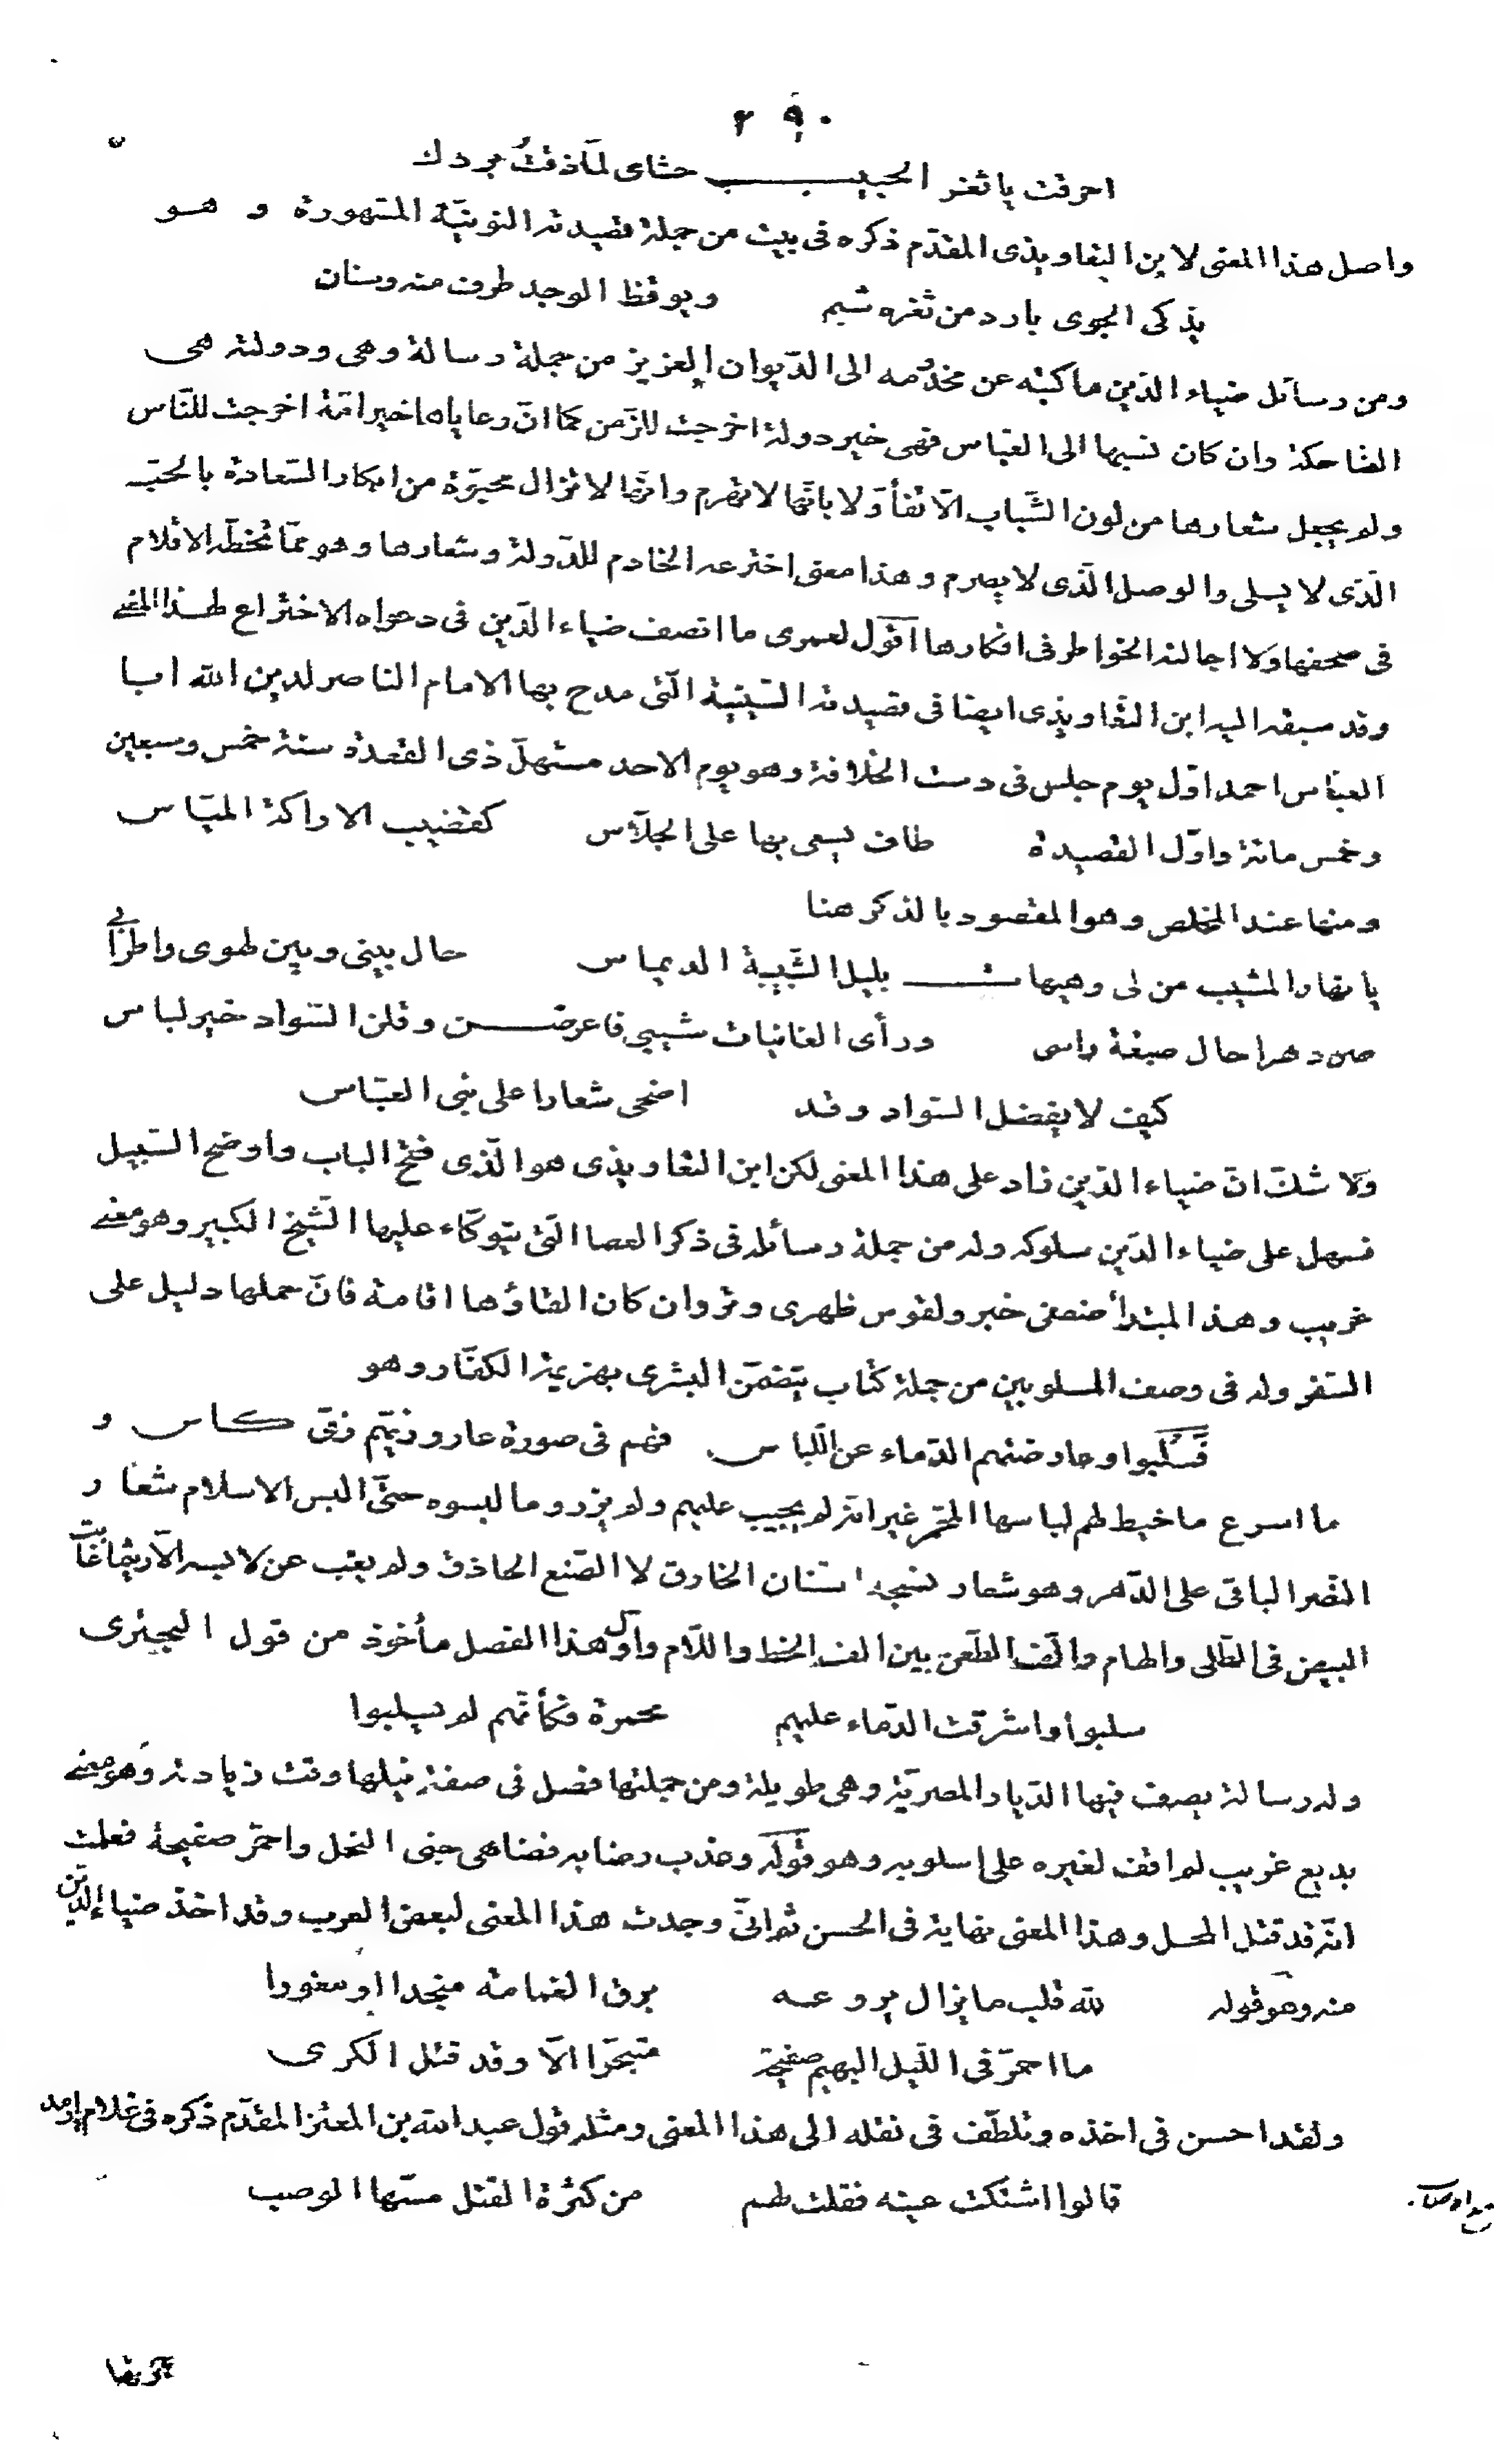 ٢٩٠
احرقت يا ثغر الحبيب حشاى لما ذقت بردك
واصل هذا المعنى لابن التعاويذى المقدّم ذكره فى بيت من جملة قصيدته النونيّة المشهورة و هو
يذكى الجوى بارد من ثغره شبم ويوقظ الوجد طرف منه وسنان
ومن رسائل ضياء الدّين ما كتبه عن مخدومه الى الدّيوان العزيز من جملة رسالة وهى ودولته هى
الضاحكة وان كان نسبها الى العبّاس فهى خير دولة اخرجت للزّمن كما انّ رعاياها خير امّة اخرجت للنّاس
ولم يجعل شعارها من لون الشّباب الّا تفأوّلا بانّها لا تهرم وانّها لا تزال محبّرة من ابكار السّعادة بالحبّ
الّذى لا يسلى والوصل الّذى لا يصرم وهذا معنى اخترعه الخادم للدّولة وشعارها وهو ممّا تخطّه الاقلام
فى صحفها ولا اجالته الخواطر فى افكارها اقول لعمرى ما انصف ضياء الدّين فى دعواه الاختراع لهذا المعنى
وقد سبقه اليه ابن التعاويذى ايضا فى قصيدته السّينيّة الّتى مدح بها الامام الناصر لدين الله ابا
العبّاس احمد اوّل يوم جلس فى دست الخلافة وهو يوم الاحد مستهلّ ذى القعدة سنة خمس وسبعين
وخمس مائة واوّل القصيدة طاف يسعى بها على الجلّاس كقضيب الاراكة الميّاس
ومنها عند المخلص وهو المقصود بالذكر هنا
يا نهار المشيب من لى وهيهات بليل الشّبيبة الديماس حال بينى وبين لهوى واطرابى
صرد دهر احال صبغة راسى ورأى الغانيات شيبى فاعرضن وقلن السّواد خير لباس
كيف لا يفضل السّواد وقد اضحى شعارا على بنى العبّاس
ولا شكّ انّ ضياء الدّين زاد على هذا المعنى لكن ابن التعاويذى هو الّذى فتح الباب واوضح السّبيل
فسهل على ضياء الدّين سلوكه وله من جملة رسائله فى ذكر العصا الّتى يتوكّاء عليها الشّيخ الكبير وهو معنى
غريب وهذا لمبتدأ ضعفى خبر ولقوس ظهرى وتر وان كان القاؤها اقامة فانّ حملها دليل على
السّفر وله فى وصف المسلوبين من جملة كتاب يتضمّن البشرى بهزيمة الكفّار وهو
فسلبوا وعاوضتهم الدّماء عن اللّباس فهم فى صورة عار وزيّهم زىّ كاس و
ما اسرع ما خيط لهم لباسها المحمّر غير انّه لم يجيب عليهم ولم يزر وما لبسوه حتّى البس الاسلام شعار
النّصر الباقى على الدّهر وهو شعار نسجه السّنان الخارق لا الصّنع الحاذق ولم يغب عن لابسه الّا ريثما غابت
البيض فى الطّلى والهام والّف الطّعن بين الف الخطّ واللّام واوّل هذا الفصل مأخوذ من قول البحترى
سلبوا واشرقت الدّماء عليهم محمرة فكأنّهم لم يسلبوا
وله رسالة يصف فيها الدّيار المصريّة وهى طويلة ومن جملتها فصل فى صفة نيلها وقت زيادته وهو معنى
بديع غريب لم اقف لغيره على اسلوبه وهو قوله وعذب رضابه فضاهى جنى النحل واحمرّ صفيحة فعلمت
انّه قد قتل المحل وهذا المعنى نهاية فى الحسن ثم انّى وجدت هذا المعنى لبعض العرب وقد اخذ ضياء الدّين
منه وهو قوله لله قلب ما يزال يروعه برق الغمامة منجدا او مغورا
ما احمرّ فى اللّيل البهيم صفيحة متبحّرا الّا وقد قتل الكرى
ولقد احسن فى اخذه وتلطّف فى نقله الى هذا المعنى ومثله قول عبد الله بن المعتز المقدّم ذكره فى غلام ارمد
قالوا اشتكت عينه فقلت لهم من كثرة القتل مسّها الوصب